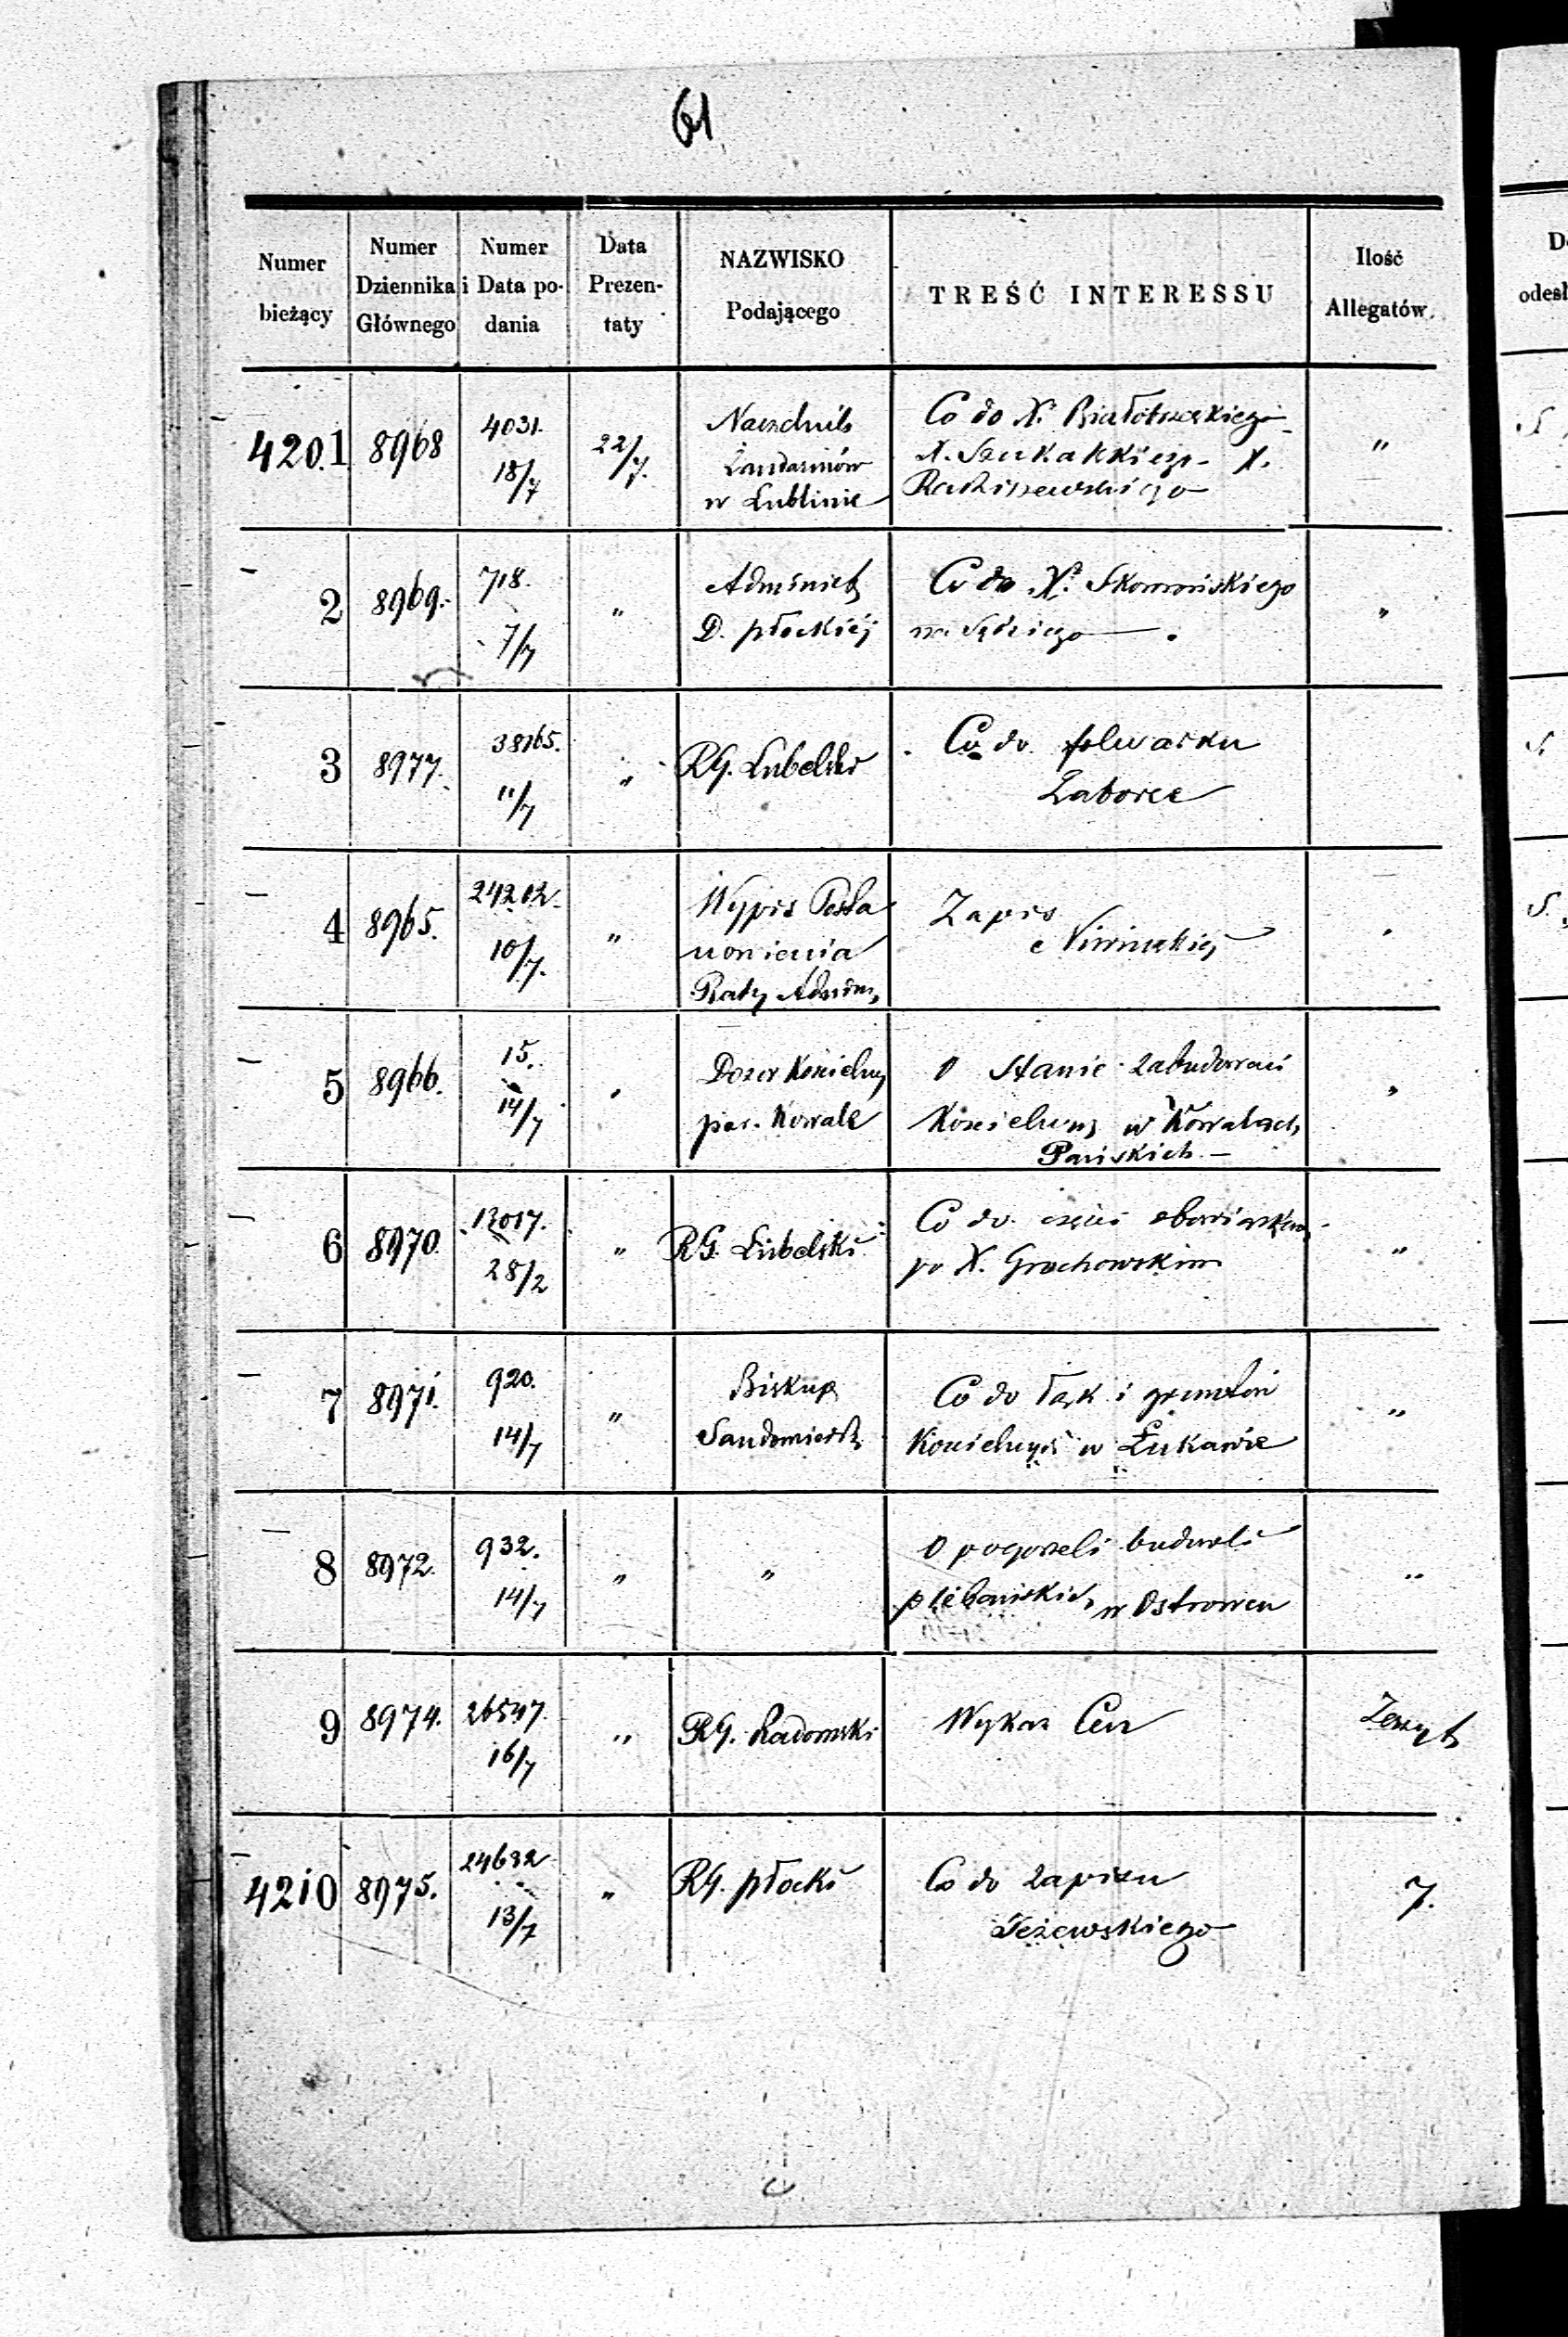 61
Numer bieżący | Numer Dziennika Głównego | Numer i Data podania | Data Prezentaty | NAZWISKO Podającego | TREŚĆ INTERESSU | Ilość Allegatów
4201 8968 4031. 18/7 22/7.
Naczelnik
Żandarmów
w Lublinie
Co do X.
X.
"
2 8969. 718. 7/7 "
Administ
D. płockiéj
Co do X. Skomorńskiego
na Sędziego
"
3 8977. 38165. 11/7 "
RG. Lubelski
Co do folwarku
Zaborce
4 8965. 24202. 10/7. "
Wypis Posta
nowienia
Rady Admin,
Zapis
"
5 8966. 15. 14/7 "
Dozór Kościelny
par. Kowale
O Stanie zabudowań
Kościelnych w Kowalach
Pańskich
"
6 8970. 28/2 "
RG. Lubelski
Co do części obowiązków
po X. Grochowskim
"
7 8971. 920. 14/7 "
Biskup
Sandomiersk
Co do łąk i gruntów
Kościelnych w Łukawie
"
8 8972. 932. 14/7 "
"
O pogorzeli budowli
plebańskich w Ostrowcu
"
9 8974. 26547. 16/7 "
RG. Radomski
Wykaz Cen
Zeszyt
4210 8975. 24632 13/7 "
RG. płocki
Co do zapisu
Jeżewskiego
7.